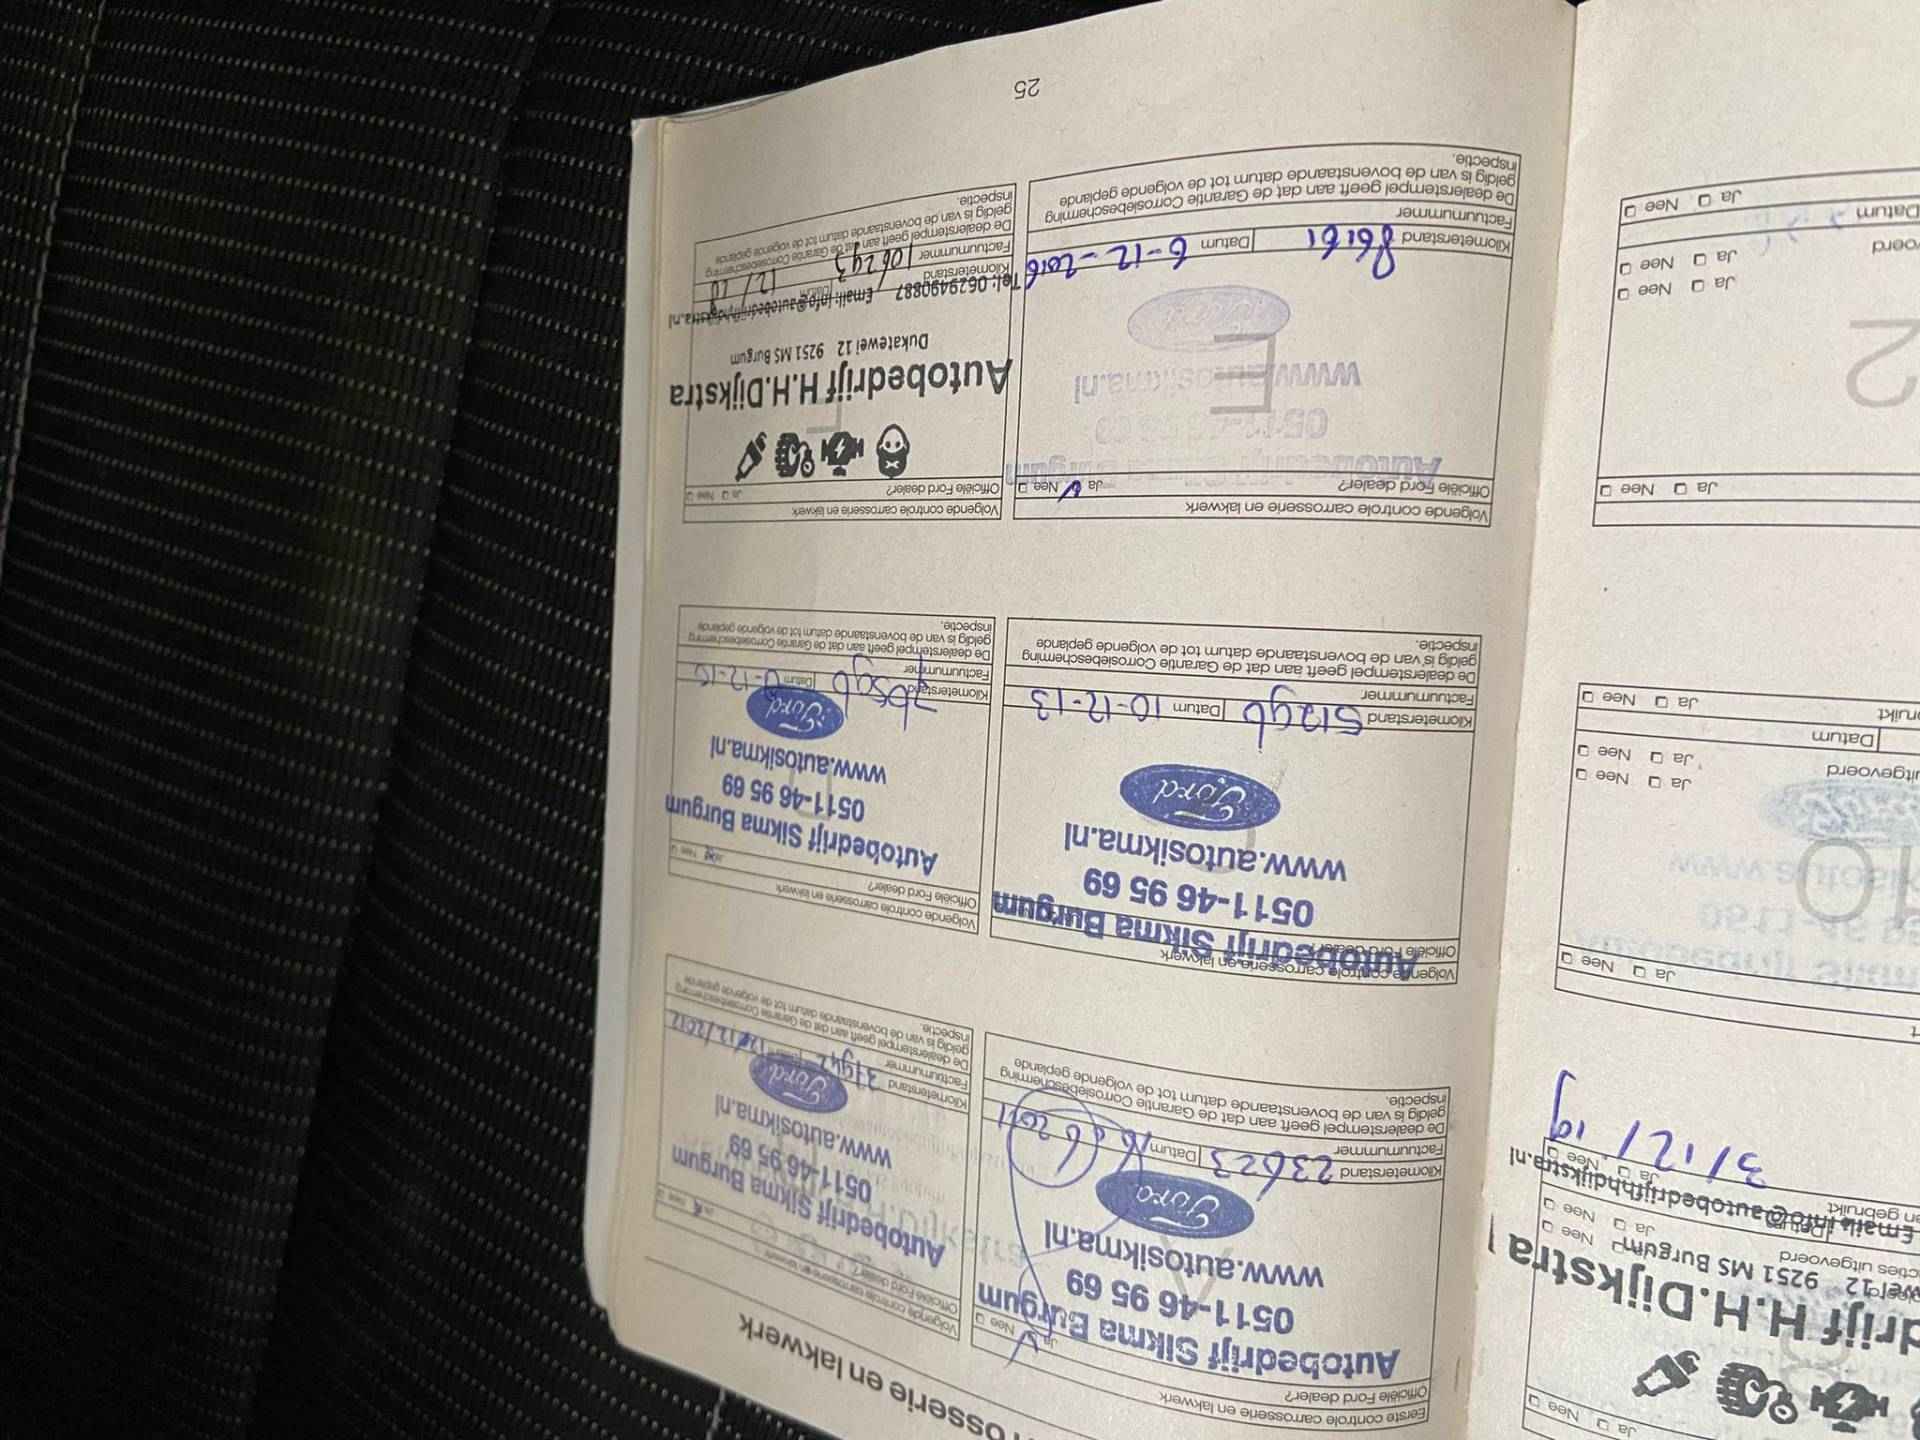 Ja Nee
drijf H.H.Dijkstra
wei 12 9251 MS Burgum
cties uitgevoerd Ja Nee
Email: info@autobedrijfhhdijkstra.nl
n gebruikt Ja Nee
3/12/19
Ja Nee
10
Ford
uitgevoerd Ja Nee
Ja Nee
Datum
Ja Nee
Ja Nee
2
Ja Nee
voerd Ja Nee
Datum
Ja Nee
rosserie en lakwerk
Eerste controle carrosserie en lakwerk
Officiële Ford dealer? Ja Nee
Autobedrijf Sikma Burgum
0511-46 95 69
www.autosikma.nl
Ford
Kilometerstand 23623 Datum 16 6 2011
Factuurnummer
De dealerstempel geeft aan dat de Garantie Corrosiebescherming
geldig is van de bovenstaande datum tot de volgende geplande
inspectie.
Volgende controle carrosserie en lakwerk
Officiële Ford dealer? Ja Nee
Autobedrijf Sikma Burgum
0511-46 95 69
www.autosikma.nl
Ford
Kilometerstand 37942 12/2012
Factuurnummer
De dealerstempel geeft aan dat de Garantie Corrosiebescherming
geldig is van de bovenstaande datum tot de volgende geplande
inspectie.
Volgende controle carrosserie en lakwerk
Officiële Ford dealer?
Autobedrijf Sikma Burgum
0511-46 95 69
www.autosikma.nl
Ford
Kilometerstand 51296 Datum 10-12-13
Factuurnummer
De dealerstempel geeft aan dat de Garantie Corrosiebescherming
geldig is van de bovenstaande datum tot de volgende geplande
inspectie.
Volgende controle carrosserie en lakwerk
Officiële Ford dealer? Ja Nee
Autobedrijf Sikma Burgum
0511-46 95 69
www.autosikma.nl
Ford
Kilometerstand Datum
Factuurnummer
De dealerstempel geeft aan dat de Garantie Corrosiebescherming
geldig is van de bovenstaande datum tot de volgende geplande
inspectie.
Volgende controle carrosserie en lakwerk
Officiële Ford dealer? Ja Nee
Autobedrijf Sikma Burgum
0511-46 95 69
www.autosikma.nl
E
Ford
Kilometerstand 86161 Datum 6-12-2016
Factuurnummer
De dealerstempel geeft aan dat de Garantie Corrosiebescherming
geldig is van de bovenstaande datum tot de volgende geplande
inspectie.
Volgende controle carrosserie en lakwerk
Officiële Ford dealer? Ja Nee
Autobedrijf H.H.Dijkstra
Dukatewei 12 9251 MS Burgum
Tel: 0629490887 Email: info@autobedrijfhhdijkstra.nl
Kilometerstand 106293 Datum 12/18
Factuurnummer
De dealerstempel geeft aan dat de Garantie Corrosiebescherming
geldig is van de bovenstaande datum tot de volgende geplande
inspectie.
25